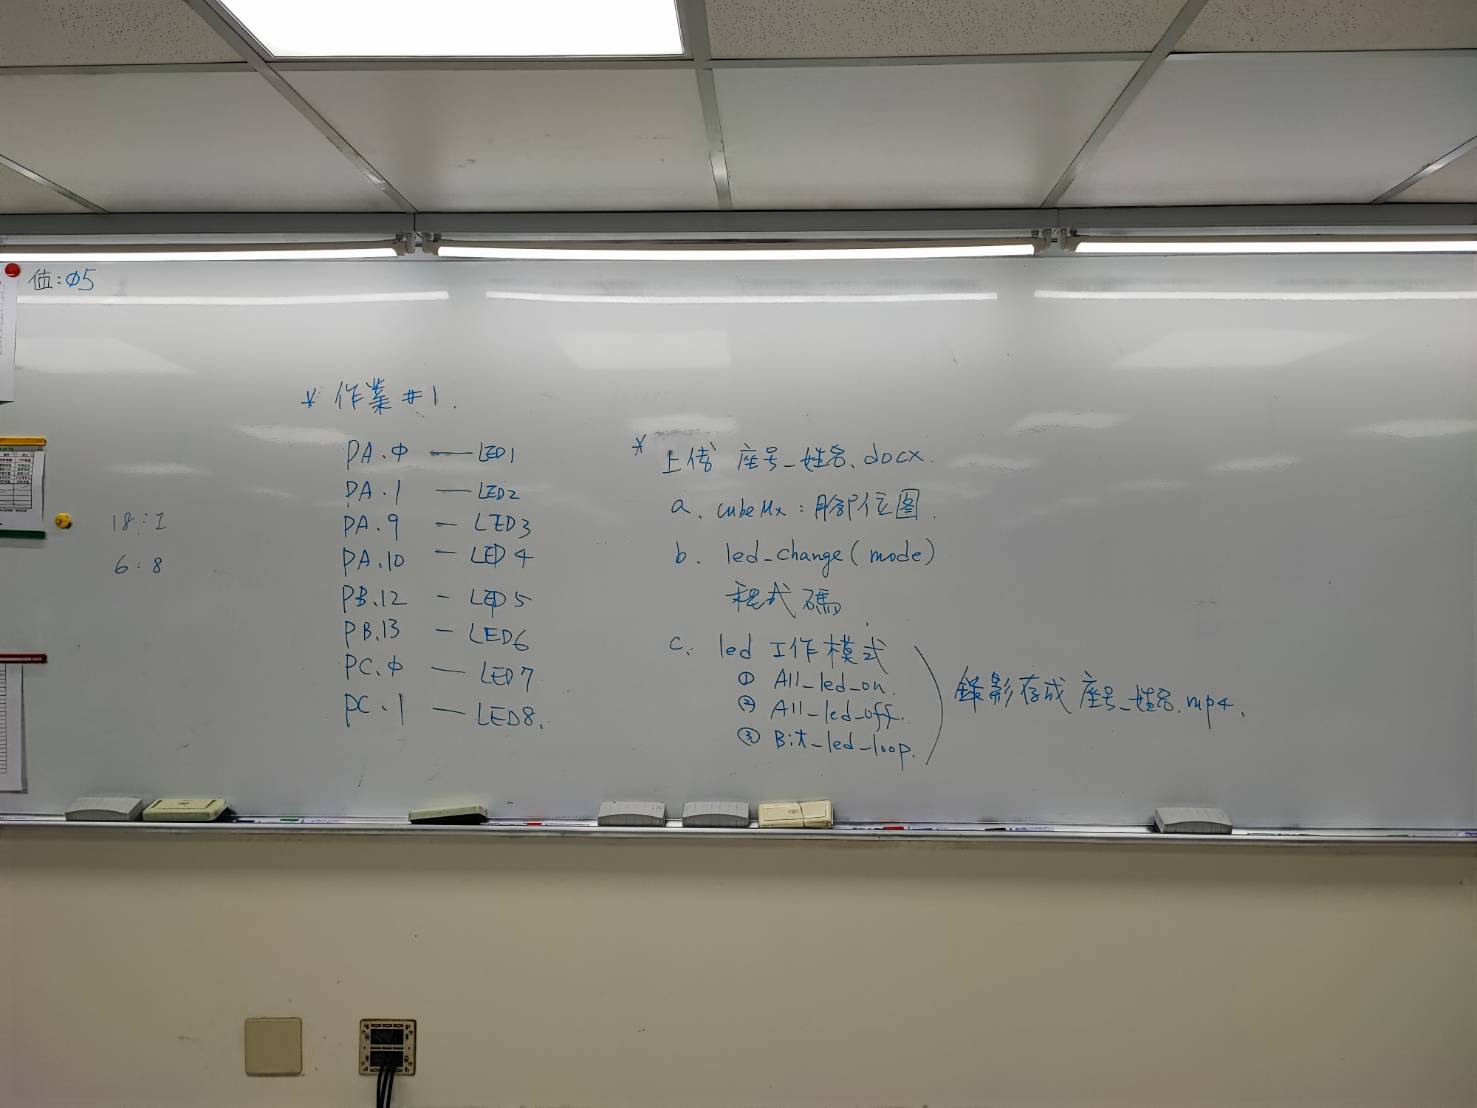 值:φ5
* 作業 #1.
PA.φ — LED1
PA.1 — LED2
PA.9 — LED3
PA.10 — LED4
PB.12 - LED5
PB.13 - LED6
PC.φ — LED7
PC.1 — LED8.
* 上傳 座号_姓名.docx.
a. cubeMx: 腳位图.
b. led_change(mode)
程式碼.
c. led 工作模式
① All_led_on.
② All_led_off.
③ Bit_led_loop.
錄影存成 座号_姓名.mp4.
6:8